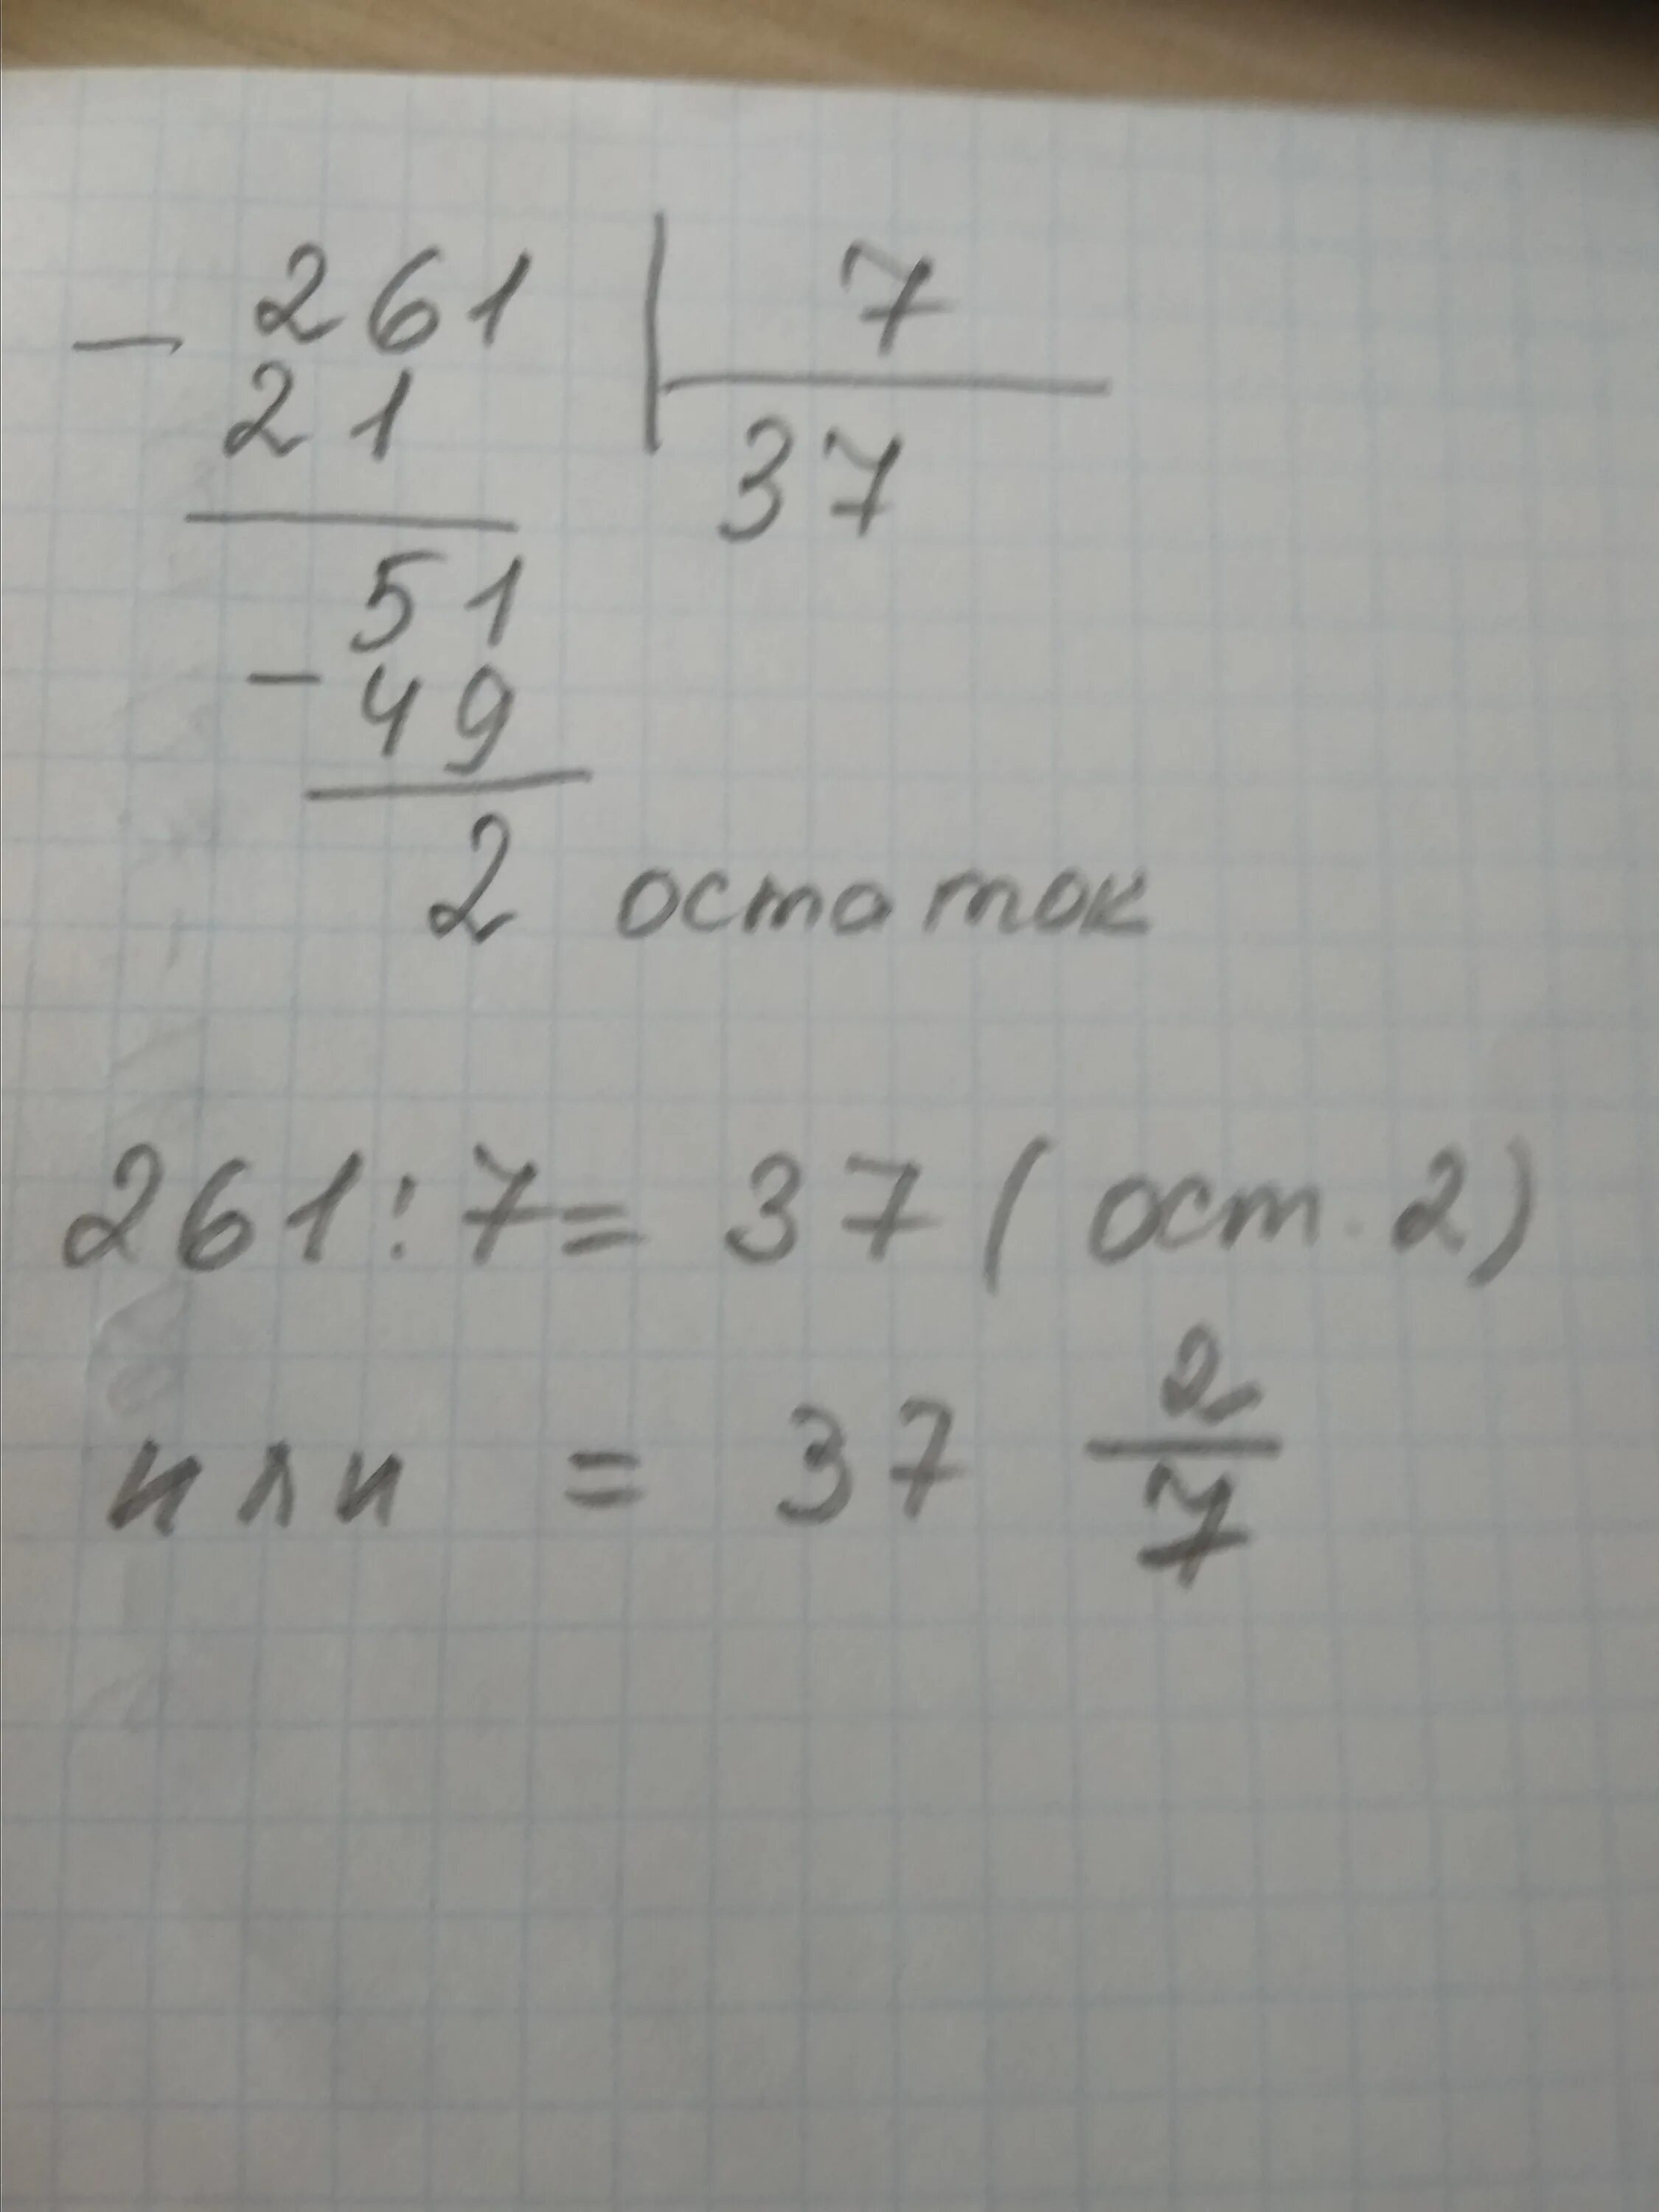 - 261 | 7
21 37
51
- 49
2 остаток
261 : 7 = 37 ( ост. 2)
или = 37 2/7